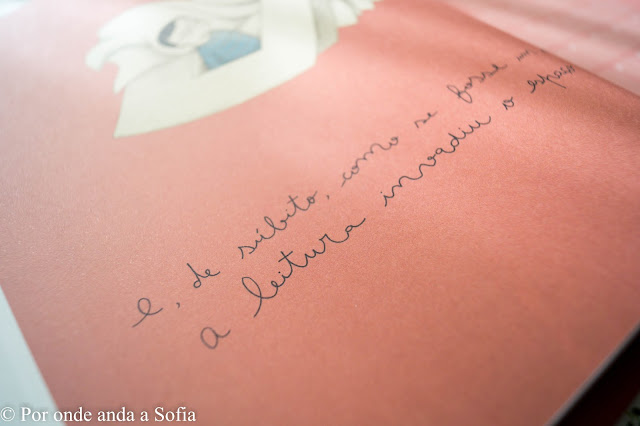 e, de súbito, como se fosse
a leitura invadiu o
© Por onde anda a Sofia